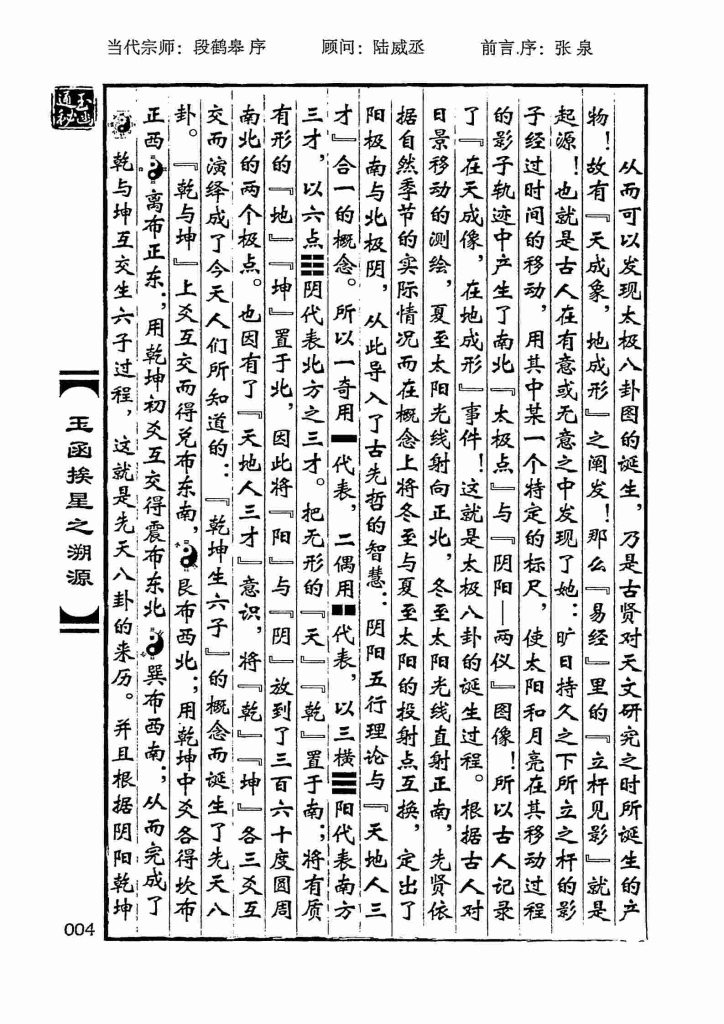 当代宗师：段鹤皋 序　顾问：陆威丞　前言.序：张 泉
玉函通秘
从而可以发现太极八卦图的诞生，乃是古贤对天文研究之时所诞生的产
物！故有『天成象，地成形』之阐发！那么『易经』里的『立杆见影』就是
起源！也就是古人在有意或无意之中发现了她：旷日持久之下所立之杆的影
子经过时间的移动，用其中某一个特定的标尺，使太阳和月亮在其移动过程
的影子轨迹中产生了南北『太极点』与『阴阳—两仪』图像！所以古人记录
了『在天成像，在地成形』事件！这就是太极八卦的诞生过程。根据古人对
日景移动的测绘，夏至太阳光线射向正北，冬至太阳光线直射正南，先贤依
据自然季节的实际情况而在概念上将冬至与夏至太阳的投射点互换，定出了
阳极南与北极阴，从此导入了古先哲的智慧：阴阳五行理论与『天地人三
才』合一的概念。所以一奇用▬代表，二偶用▪▪代表，以三横☰阳代表南方
三才，以六点☷阴代表北方之三才。把无形的『天』『乾』置于南；将有质
有形的『地』『坤』置于北，因此将『阳』与『阴』放到了三百六十度圆周
南北的两个极点。也因有了『天地人三才』意识，将『乾』『坤』各三爻互
交而演绎成了今天人们所知道的：『乾坤生六子』的概念而诞生了先天八
卦。『乾与坤』上爻互交而得兑布东南，☯艮布西北；用乾坤中爻各得坎布
正西☯离布正东；用乾坤初爻互交得震布东北☯巽布西南；从而完成了
☯乾与坤互交生六子过程，这就是先天八卦的来历。并且根据阴阳乾坤
玉函挨星之溯源
004